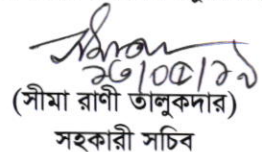 ২৩/০৫/২১
(সীমা রাণী তালুকদার)
সহকারী সচিব